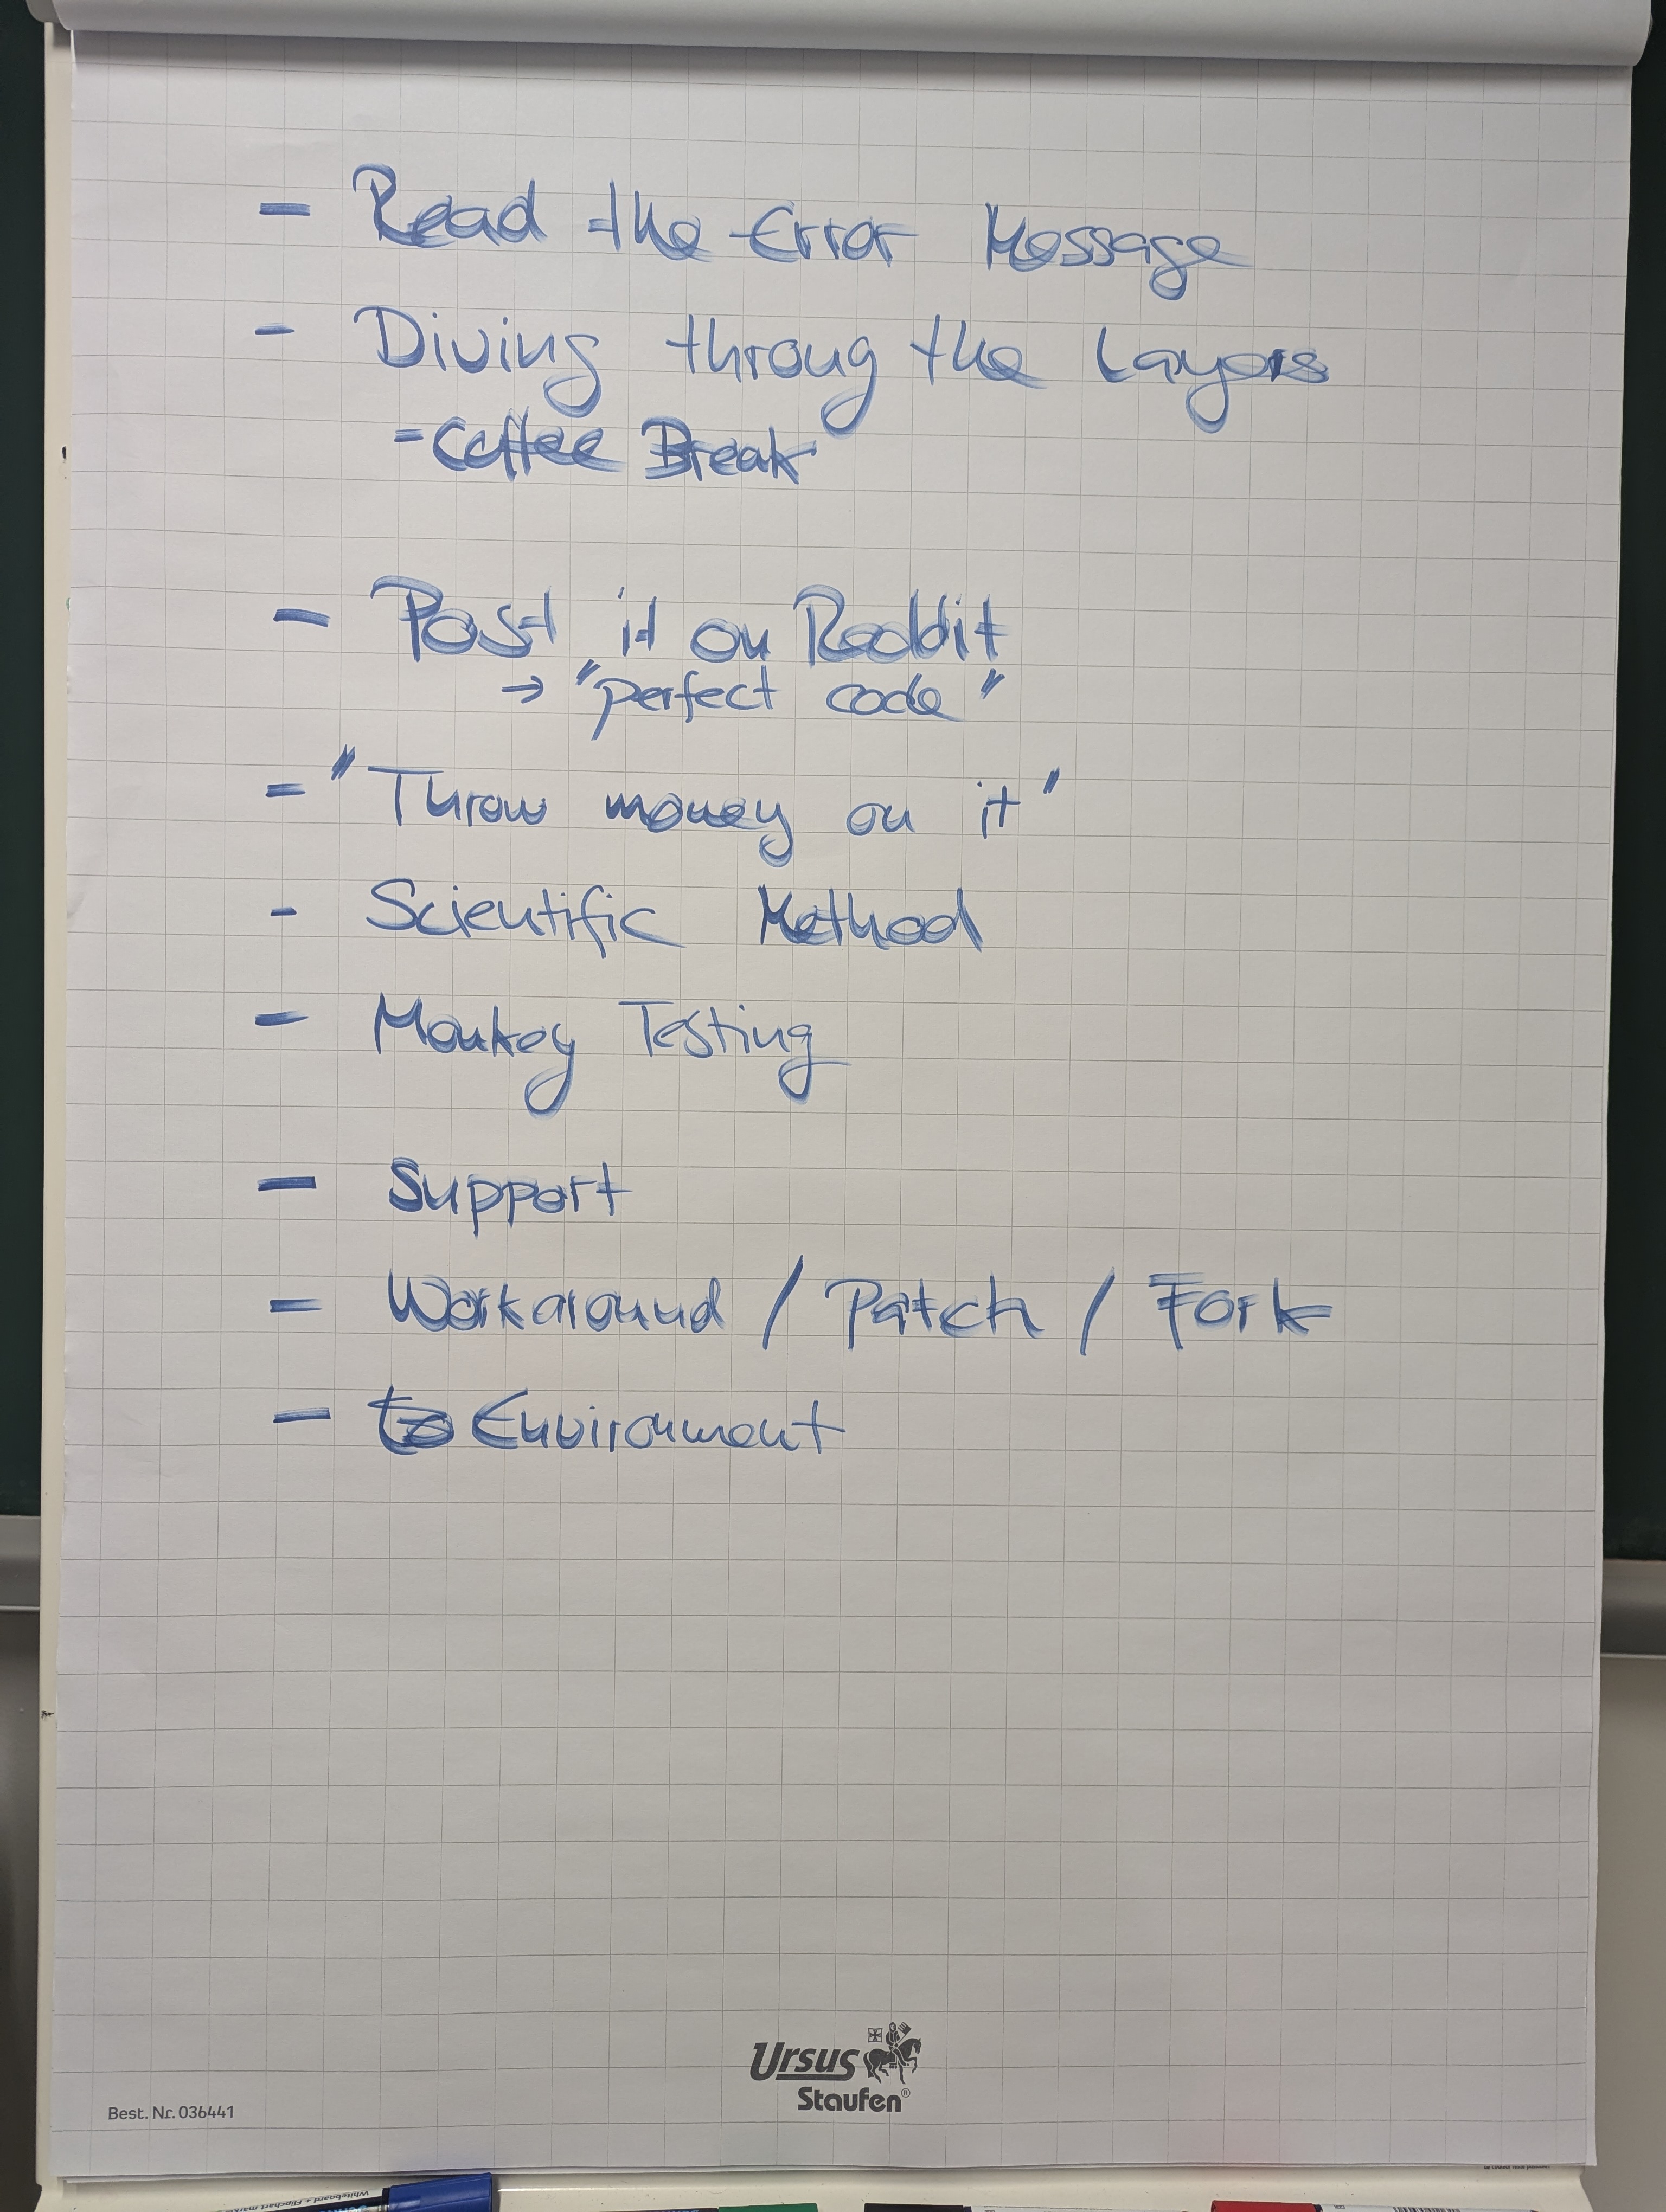 - Read the Error Message
- Diving throug the Layers
- Coffee Break
- Post it on Reddit
→ "perfect code"
- "Throw money on it"
- Scientific Method
- Monkey Testing
- Support
- Workaround / Patch / Fork
- Environment
Ursus
Staufen®
Best. Nr. 036441